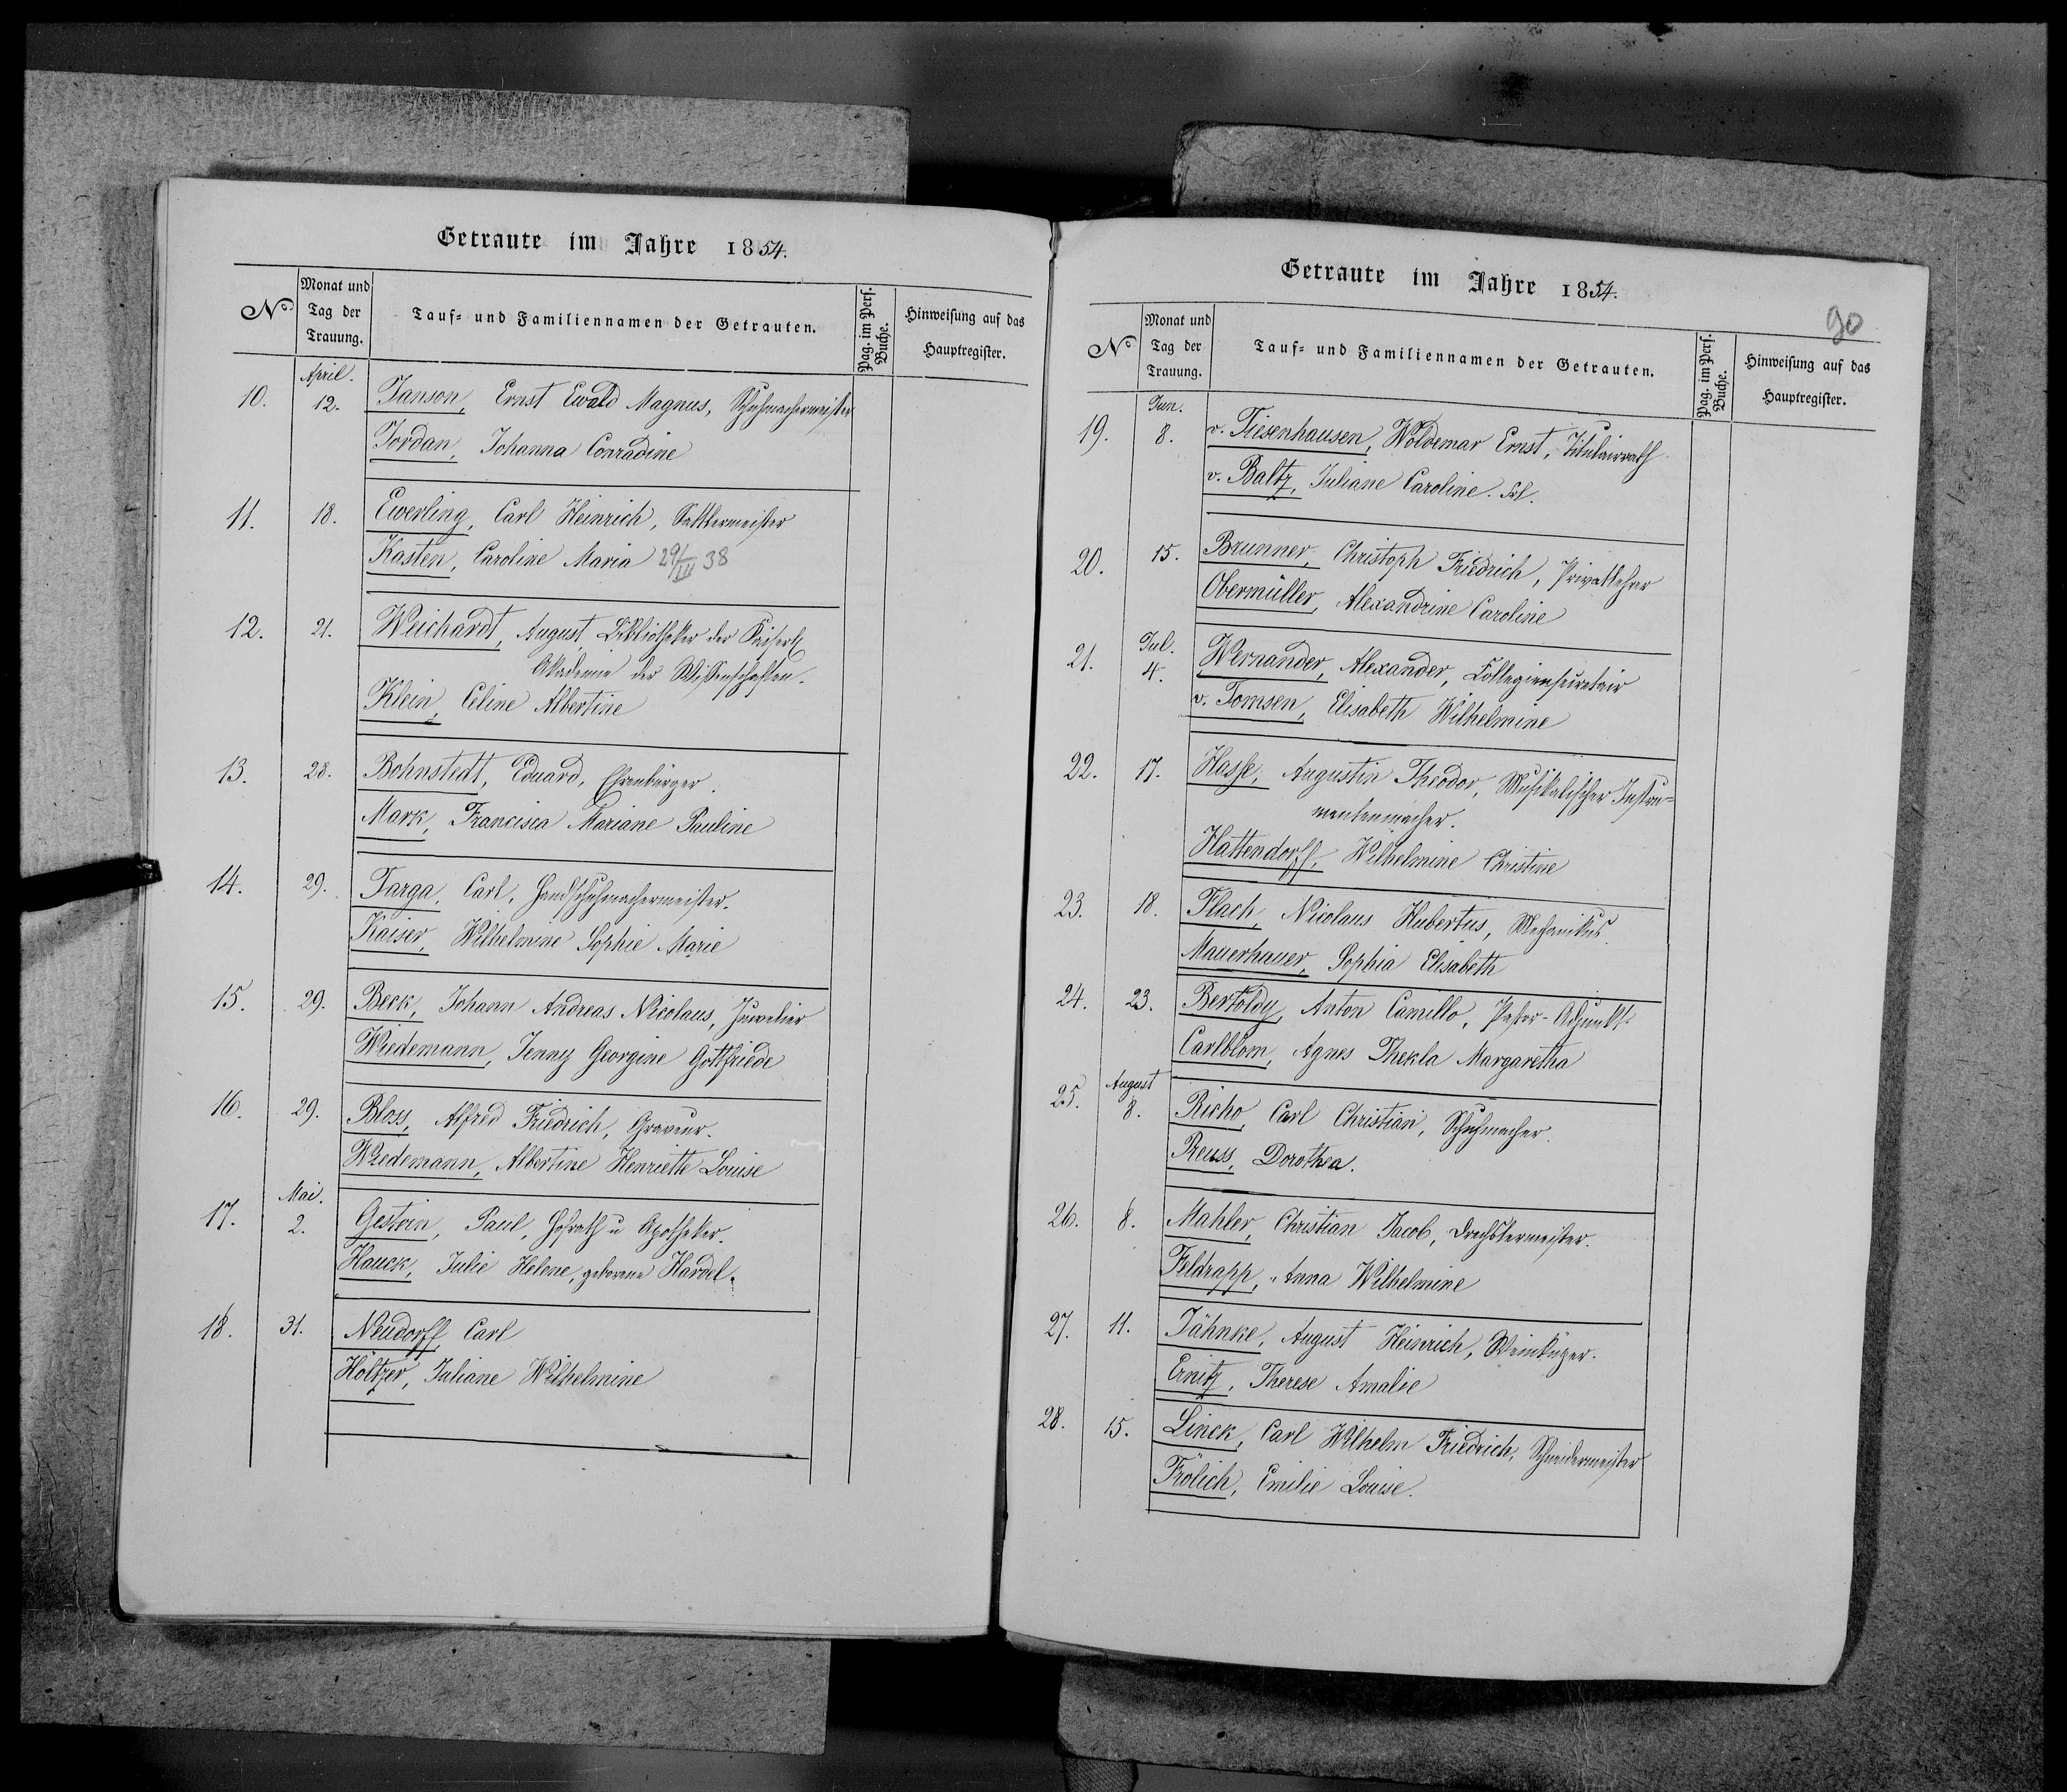 Getraute im Jahre 1854.
No
Monat und Tag der Trauung.
Tauf- und Familiennamen der Getrauten.
Pag. im Pers. Buche.
Hinweisung auf das Hauptregister.
April.
10. 12. Janson, Ernst Ewald Magnus, Schuhmachermeister
Jordan, Johanna Conradine
11. 18. Ewerling, Carl Heinrich, Sattlermeister
Kasten, Caroline Maria 29/III 38
12. 21. Weichardt, August, Bibliothekar der Kaiserl.
Akademie der Wissenschaften.
Klein, Celine Albertine
13. 28. Bohnstedt, Eduard, Ehrenbürger.
Mark, Francisca Mariane Pauline
14. 29. Targa, Carl, Handschuhmachermeister.
Kaiser, Wilhelmine Sophie Marie
15. 29. Beck, Johann Andreas Nicolaus, Juwelier
Wiedemann, Jenny Georgine Gottfriede
16. 29. Bloss, Alfred Friedrich, Graveur.
Wiedemann, Albertine Henriette Louise
Mai.
17. 2. Paul, Hofrath u Apotheker.
Hauck, Julie Helene, geborene Hardel.
18. 31. Neudorff, Carl
Höltzer, Juliane Wilhelmine
Getraute im Jahre 1854.
90
No
Monat und Tag der Trauung.
Tauf- und Familiennamen der Getrauten.
Pag. im Pers. Buche.
Hinweisung auf das Hauptregister.
Jun.
19. 8. v. Tiesenhausen, Woldemar Ernst, Titulairrath
v. Baltz, Juliane Caroline. Frl.
20. 15. Brunner, Christoph Friedrich, Privatlehrer
Obermüller, Alexandrine Caroline
Jul.
21. 4. Wernander, Alexander, Collegiensecretair
v. Tomsen, Elisabeth Wilhelmine
22. 17. Hasse, Augustin Theodor, Musikalischer Instru-
mentenmacher.
Hattendorff, Wilhelmine Christine
23. 18. Flach, Nicolaus Hubertus, Mechanikus
Mauerhauer, Sophia Elisabeth
24. 23. Bertoldy, Anton Camillo, Pastor-Adjunkt.
Carlblom, Agnes Thekla Margaretha
August
25. 8. Richo, Carl Christian, Schuhmacher.
Reuss, Dorothea.
26. 8. Mahler, Christian Jacob, Drechslermeister.
Feldrapp, Anna Wilhelmine
27. 11. Jähnke, August Heinrich, Weinküper.
Ernitz, Therese Amalie
28. 15. Linck, Carl Wilhelm Friedrich, Schneidermeister
Frölich, Emilie Louise.